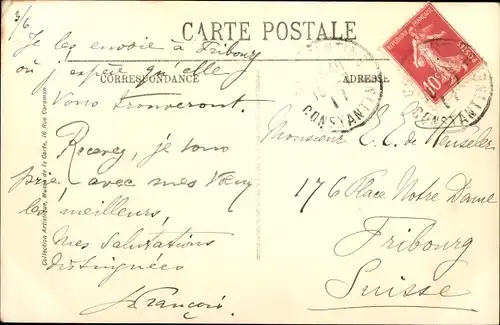 3/6
CARTE POSTALE
Je les envoie à Fribourg
où j'espère qu'elle
CORRESPONDANCE
Vous trouveront.
Recevez, je vous
prie, avec mes Vœux
les meilleurs,
mes Salutations
distinguées
François
Collection Artistique, Maison de la Carte, 16 Rue Caraman
ADRESSE
RÉPUBLIQUE FRANÇAISE
POSTES
10c
CONSTANTINE
CONSTANTINE
Monsieur E. E. de
176 Place Notre Dame
Fribourg
Suisse